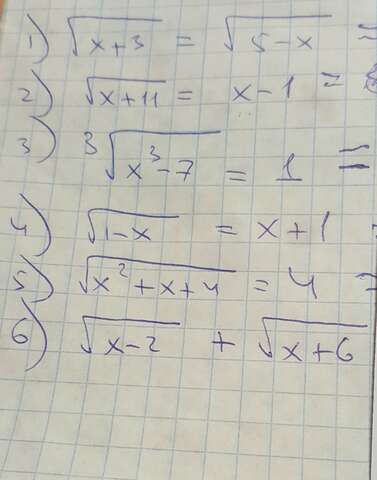 1) √(x+3) = √(5-x) =
2) √(x+11) = x-1 =
3) ³√(x³-7) = 1 =
4) √(1-x) = x+1
5) √(x²+x+4) = 4 =
6) √(x-2) + √(x+6)